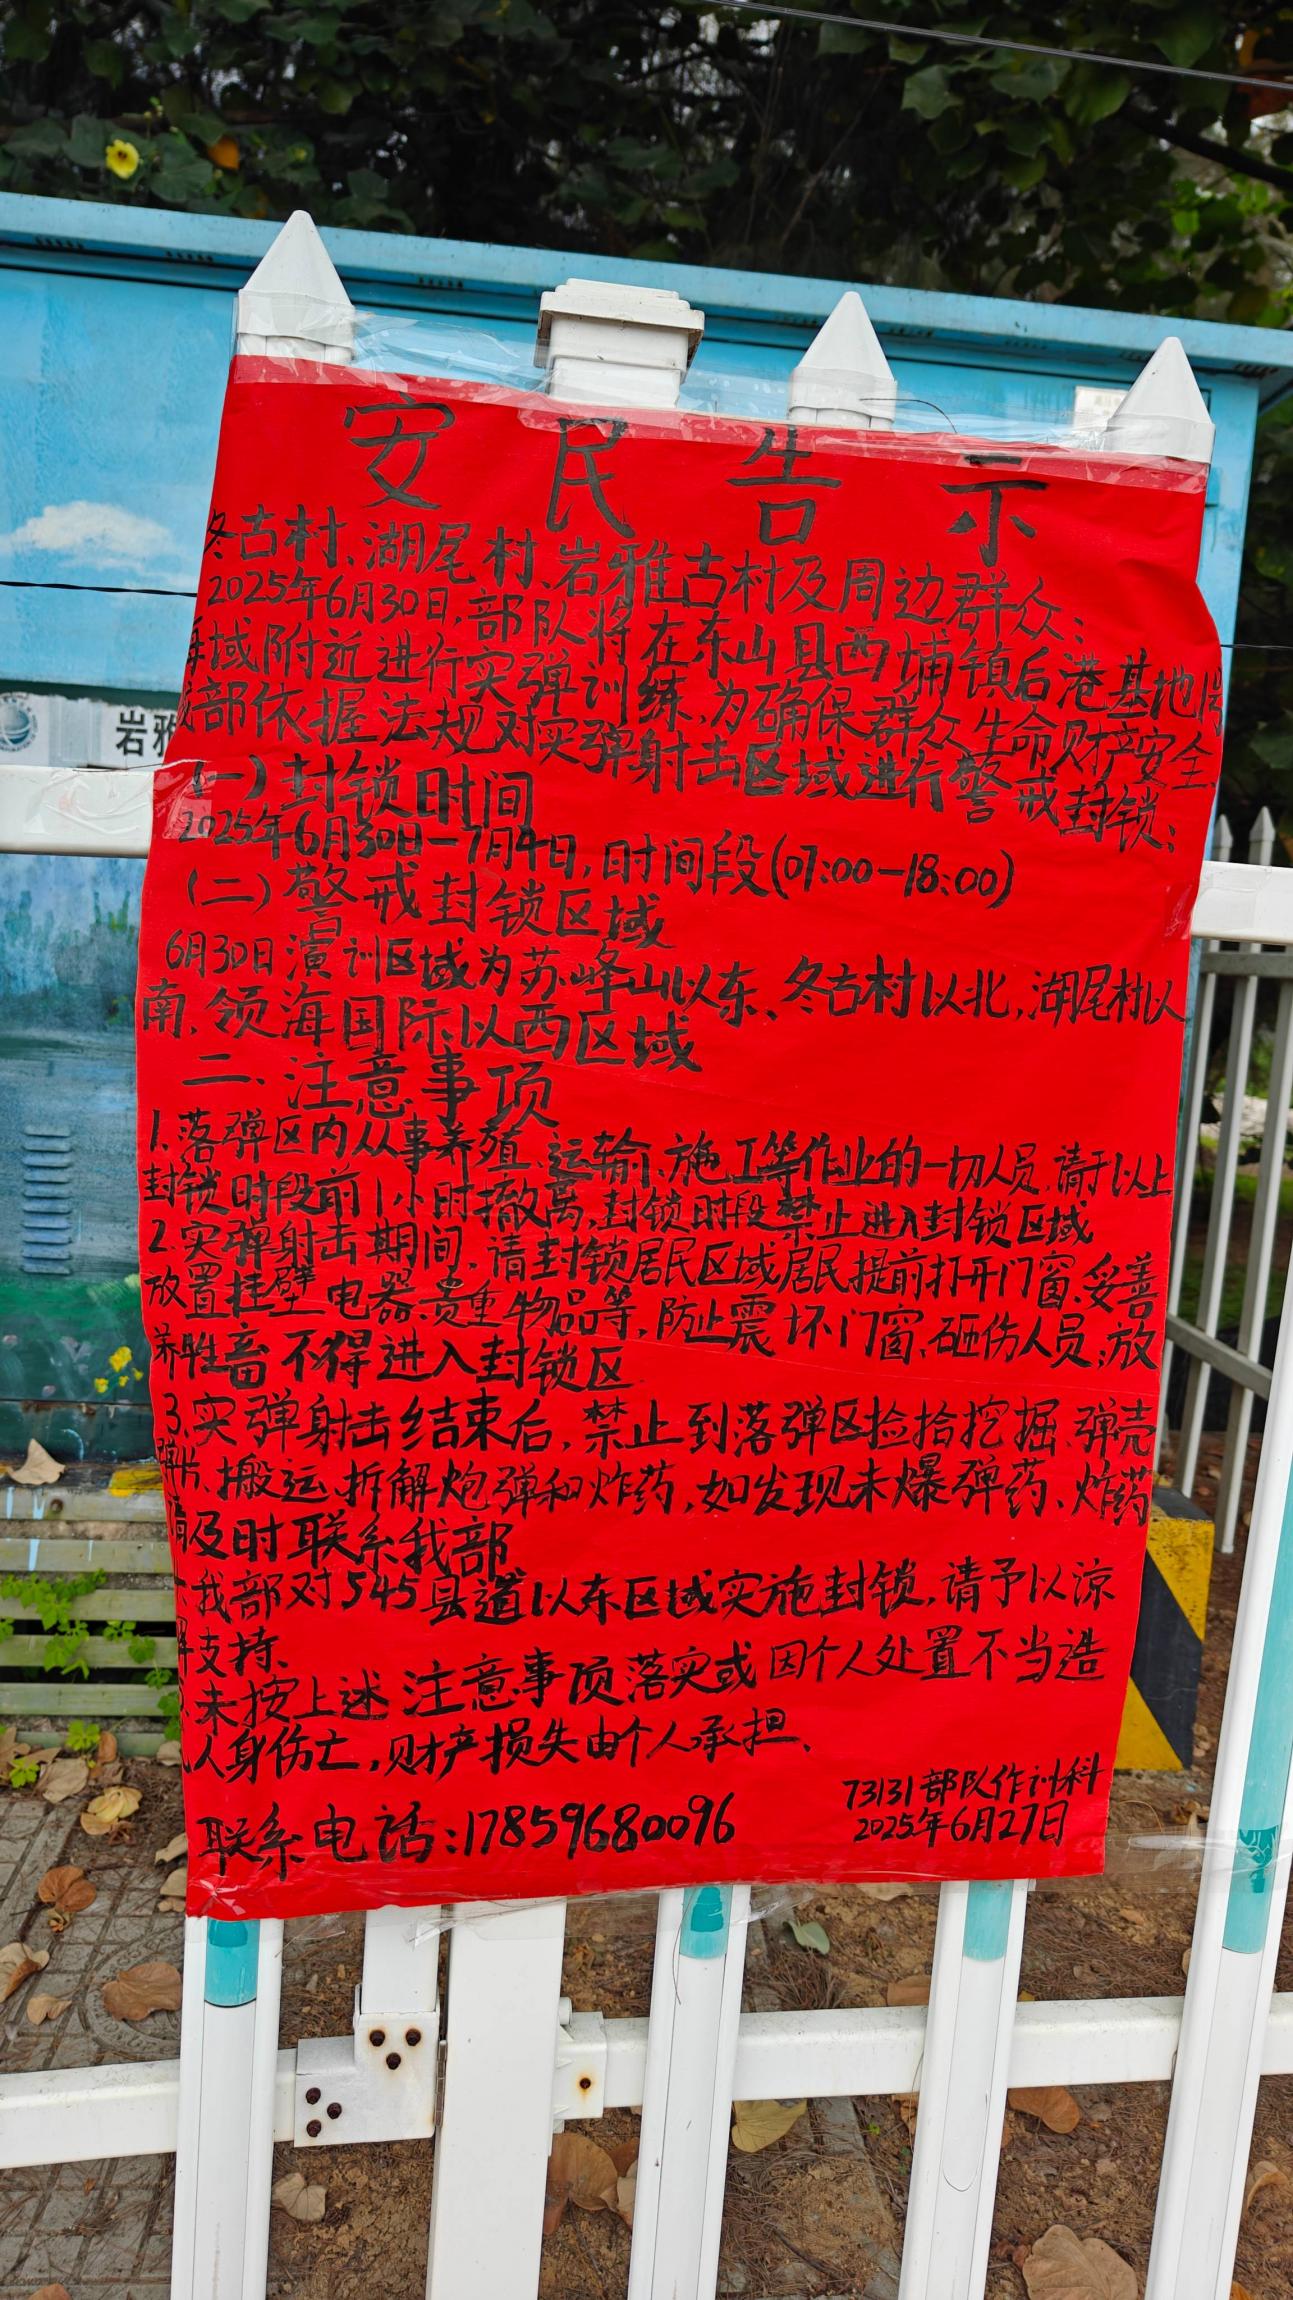 安民告示
冬古村、湖尾村、岩雅古村及周边群众：
2025年6月30日，部队将在东山县西埔镇后港基地
海域附近进行实弹训练，为确保群众生命财产安全
部依握法规对实弹射击区域进行警戒封锁：
（一）封锁时间
2025年6月30日-7月4日，时间段（07:00-18:00）
（二）警戒封锁区域
6月30日演训区域为苏峰山以东、冬古村以北，湖尾村以
南、领海国际以西区域
二、注意事项
1.落弹区内从事养殖、运输、施工等作业的一切人员，请于以上
封锁时段前1小时撤离，封锁时段禁止进入封锁区域
2.实弹射击期间，请封锁居民区域居民提前打开门窗、妥善
放置挂壁电器、贵重物品等，防止震坏门窗、砸伤人员，放
养牲畜不得进入封锁区
3.实弹射击结束后，禁止到落弹区捡拾挖掘、弹壳
弹片、搬运、拆解炮弹和炸药，如发现未爆弹药、炸药
请及时联系我部
我部对545县道以东区域实施封锁，请予以谅
解支持、
未按上述注意事项落实或因个人处置不当造
人身伤亡，财产损失由个人承担、
73131部队作训科
2025年6月27日
联系电话：17859680096
岩雅